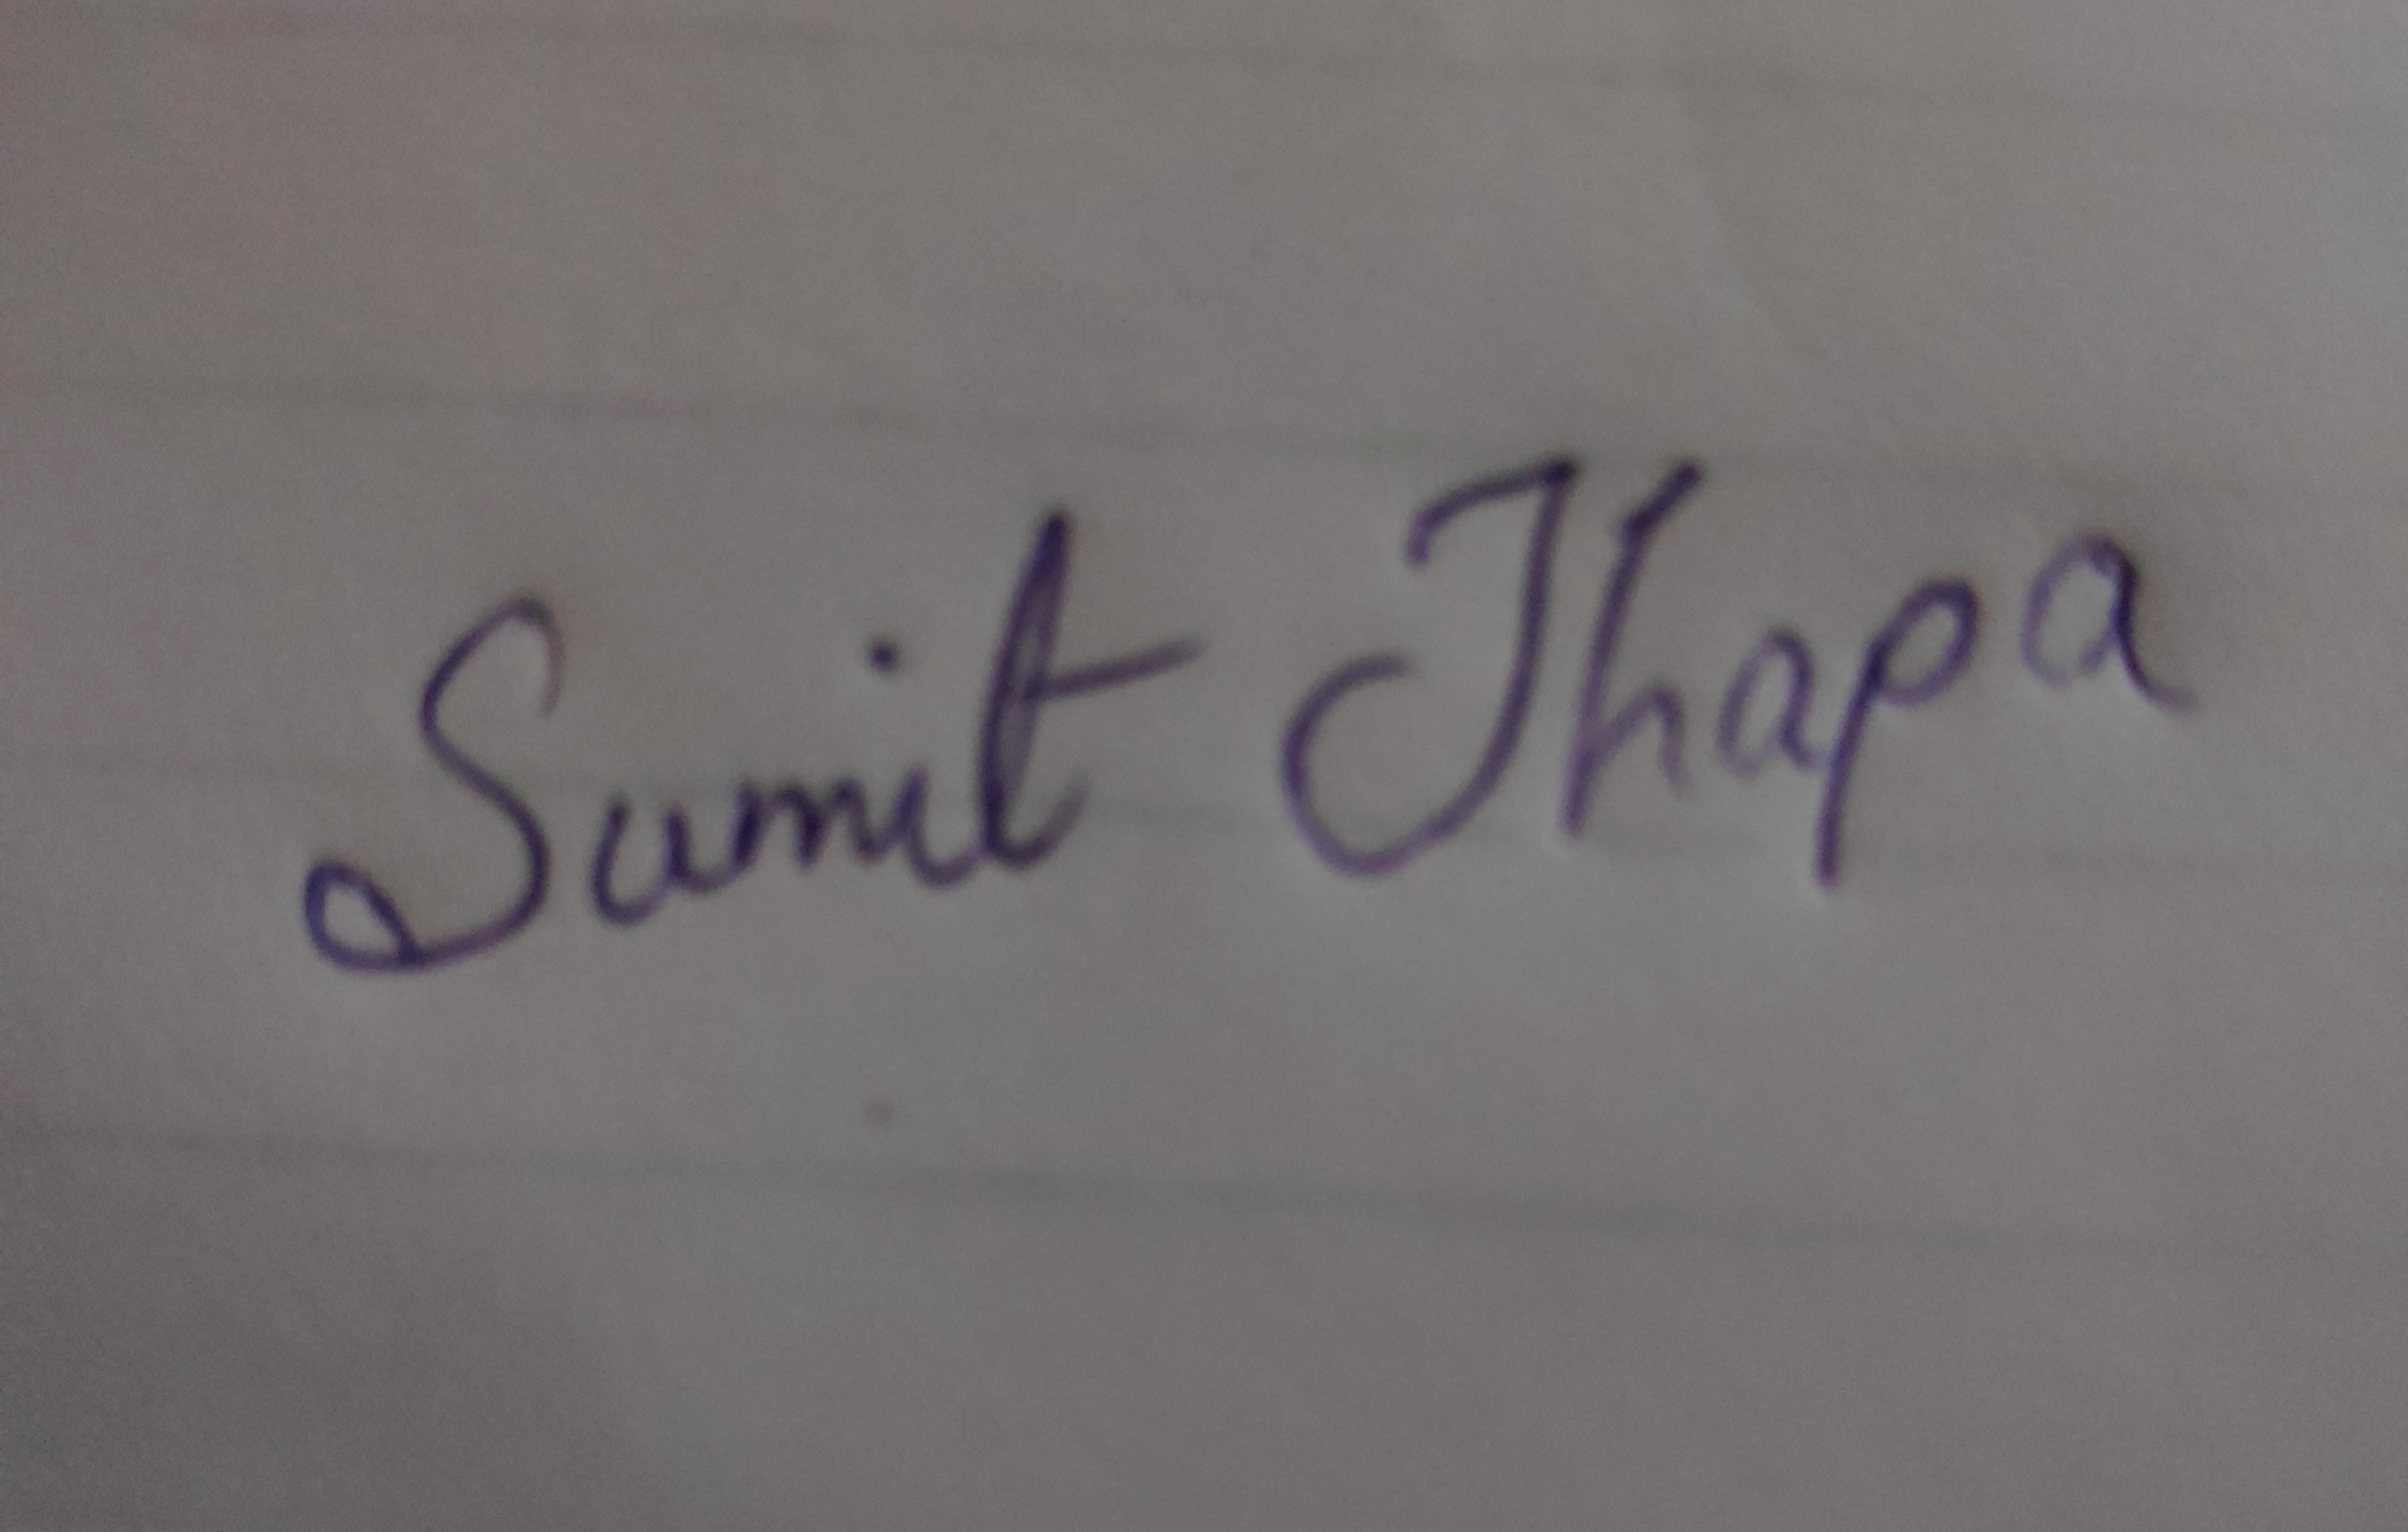 Sumit Thapa